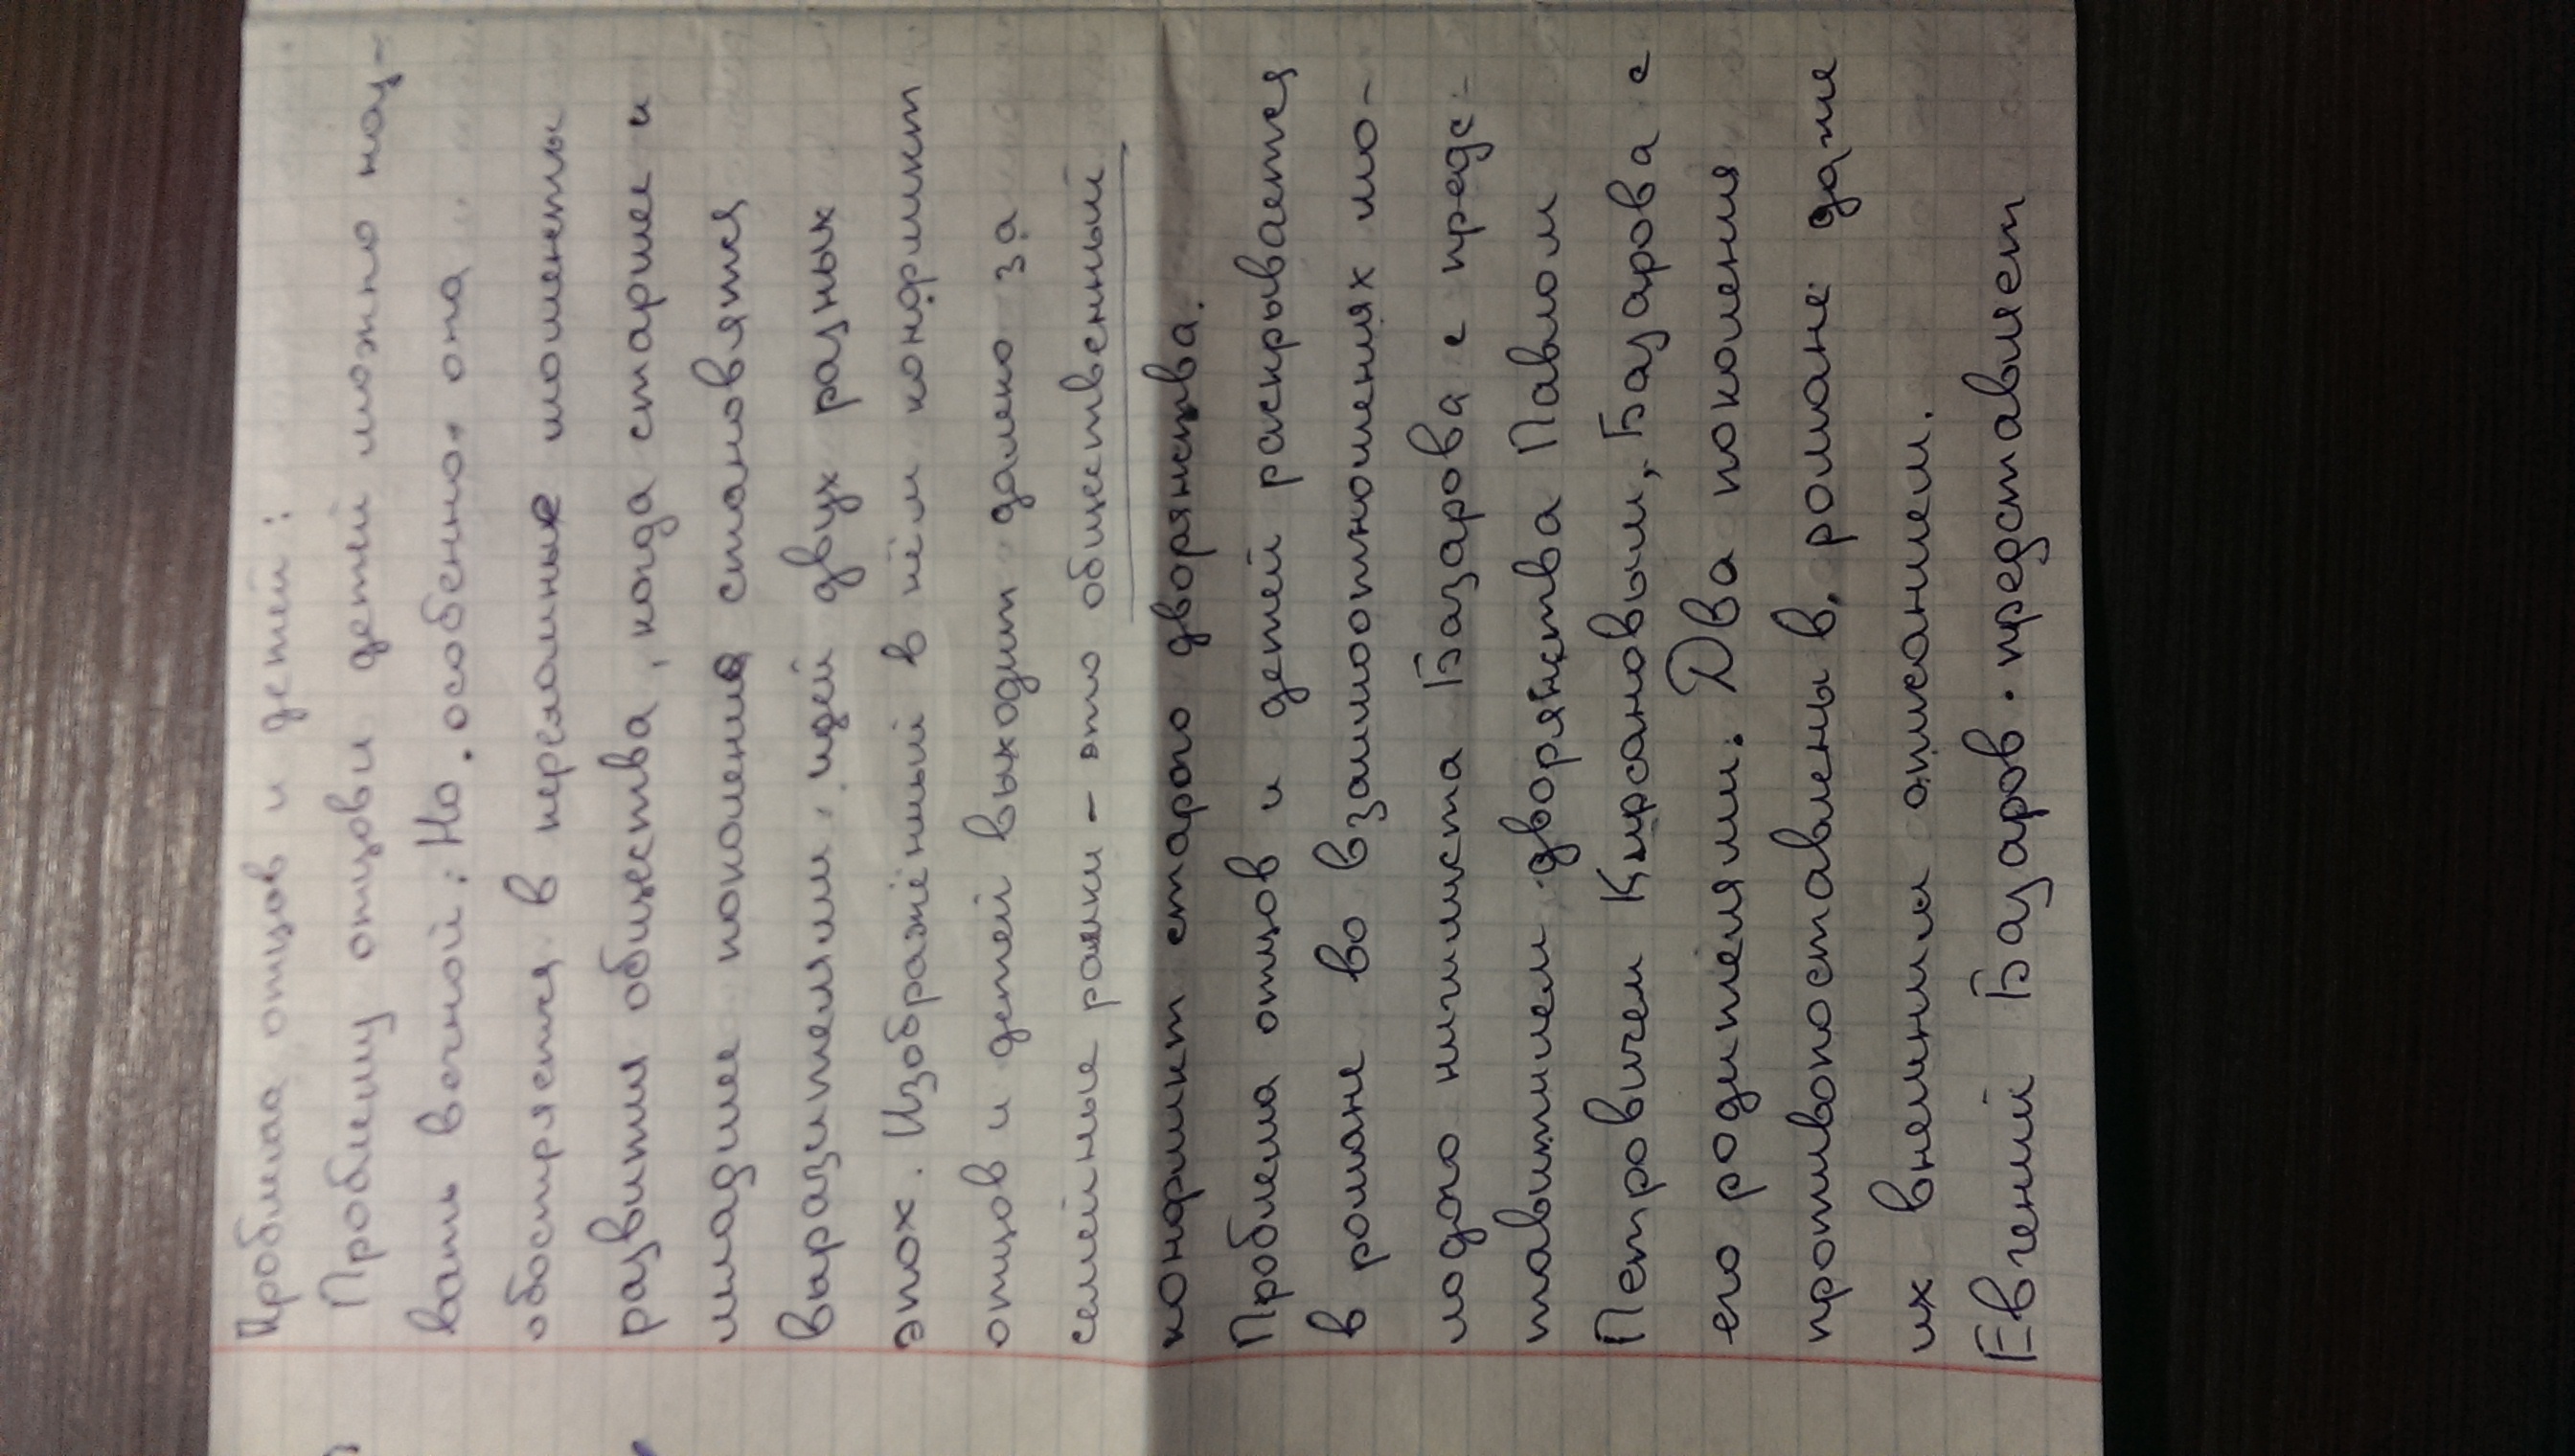 Проблема отцов и детей:
Проблему отцов и детей можно наз-
вать вечной: Но особенно она
обостряется в переломные моменты
развития общества, когда старшие и
младшие поколения становятся
выразителями идей двух разных
эпох. Изображённый в нём конфликт
отцов и детей выходит далеко за
семейные рамки - это общественный
конфликт старого дворянства.
Проблема отцов и детей раскрывается
в романе во взаимоотношениях мо-
лодого нигилиста Базарова с предс-
тавителем дворянства Павлом
Петровичем Кирсановым, Базарова с
его родителями. Два поколения
противопоставлены в романе даже
их внешним описанием.
Евгений Базаров представляет